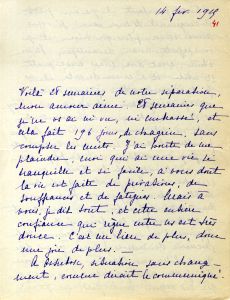 14 fév. 1918
41
Voilà 28 semaines de notre séparation,
mon amour aimé. 28 semaines que
je ne vous ai ni vu, ni embrassé, et
cela fait 196 jours de chagrin, sans
compter les nuits. J'ai honte de me
plaindre, moi qui ai une vie si
tranquille et si facile, à vous dont
la vie est faite de privations, de
souffrances et de fatigues. Mais à
vous, je dis tout, et cette entière
confiance qui règne entre nous est très
douce. C'est un lien de plus, donc
une joie de plus. —
A situation, sans change-
ment, comme dirait le communiqué.